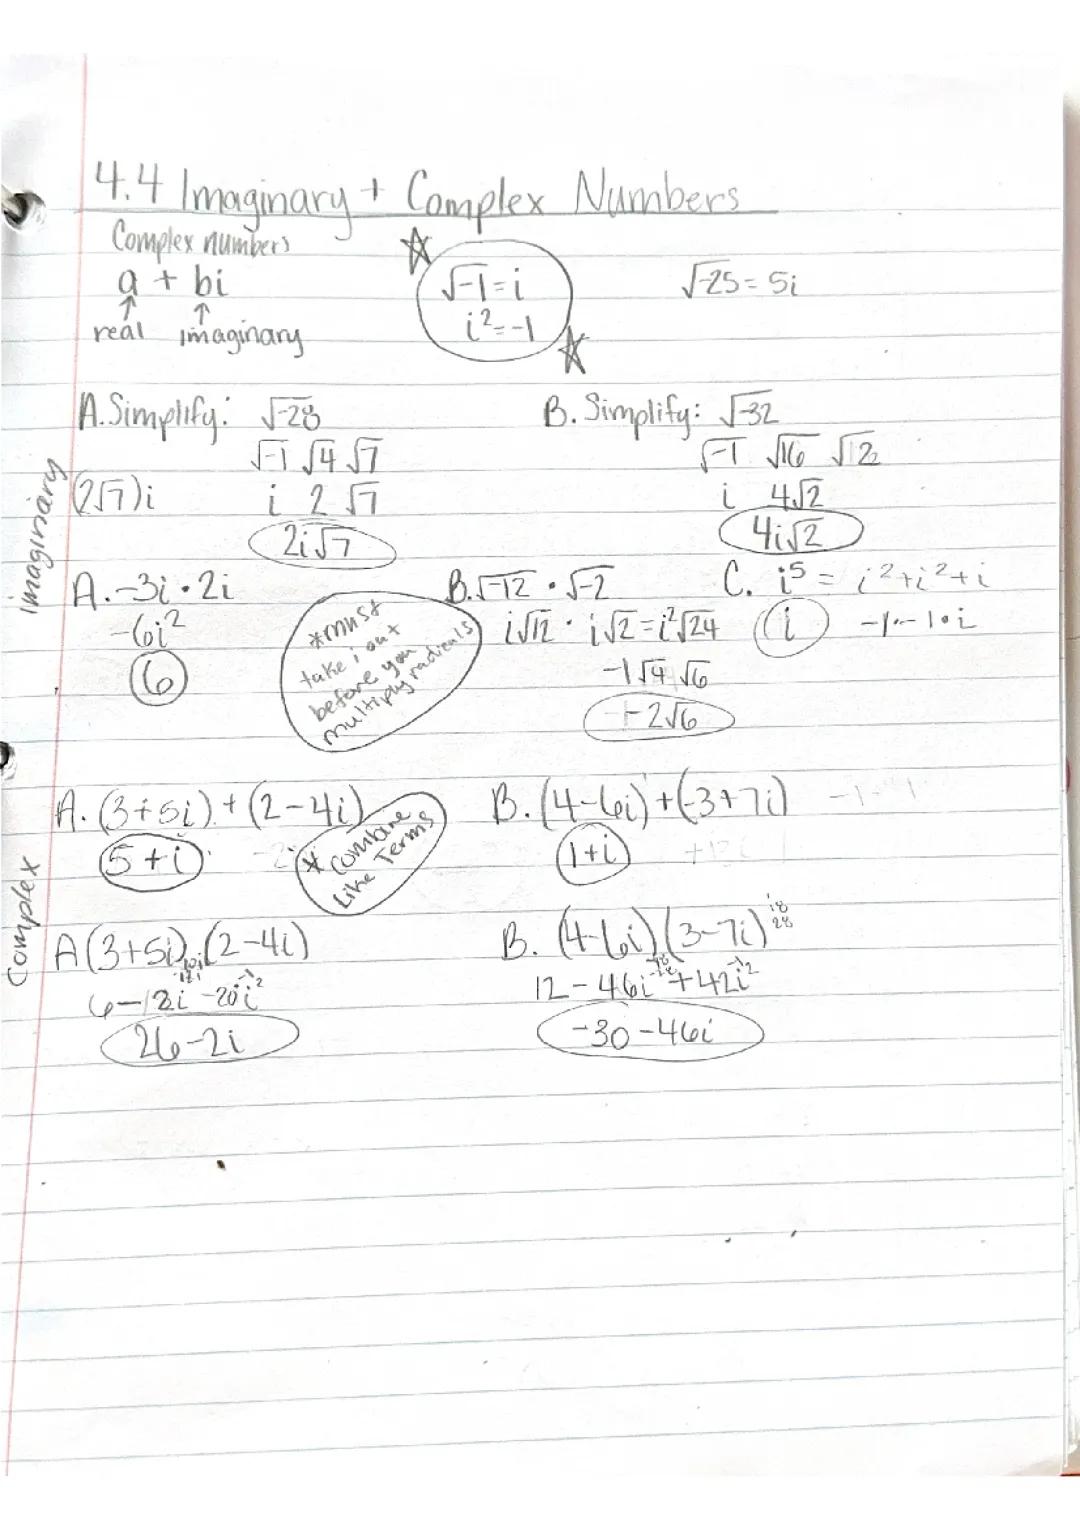 4.4 Imaginary + Complex Numbers
Complex numbers
a + bi
↑ ↑
real imaginary
√-1 = i
i² = -1
√-25 = 5i
Imaginary
A. Simplify: √-28
√-1 √4 √7
(2√7)i i 2 √7
2i√7
B. Simplify: √-32
√-1 √16 √2
i 4√2
4i√2
A. -3i · 2i
-6i²
6
*must
take i out
before you
multiply radicals
B. √-12 · √-2
i√12 · i√2 = i²√24
-1√4 √6
-2√6
C. i⁵ = i²+i²+i
i -1·-1·i
Complex
A. (3+5i) + (2-4i)
5+i
* combine
Like Terms
B. (4-6i) + (-3+7i)
1+i
A (3+5i)(2-4i)
-20i²
26-2i
B. (4-6i)(3-7i)
12-46i+42i²
-30-46i